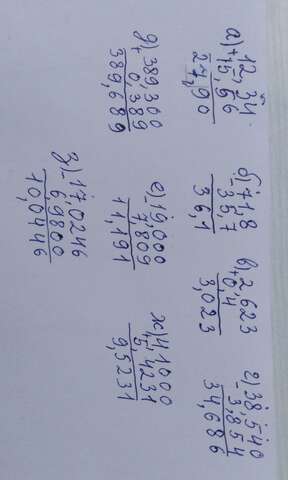 а) 12,34
+ 15,56
27,90
б) 71,8
- 35,7
36,1
в) 2,623
+ 0,4
3,023
г) 38,540
- 3,854
34,686
д) 389,300
+ 0,389
389,689
е) 19,000
- 7,809
11,191
ж) 4,1000
+ 5,4231
9,5231
з) 17,0246
- 6,9800
10,0446